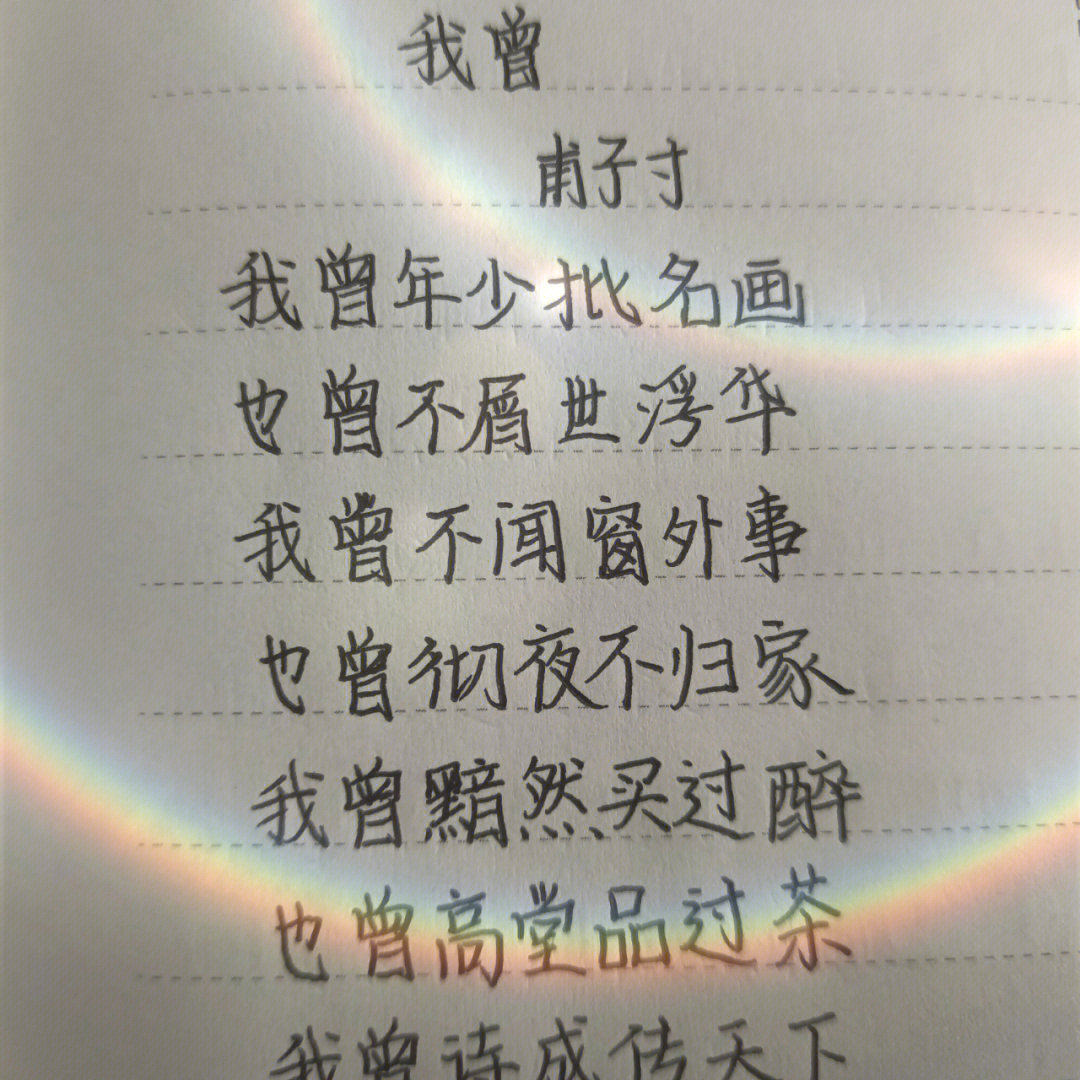 我曾
甫子寸
我曾年少批名画
也曾不屑世浮华
我曾不闻窗外事
也曾彻夜不归家
我曾黯然买过醉
也曾高堂品过茶
我曾诗成传天下